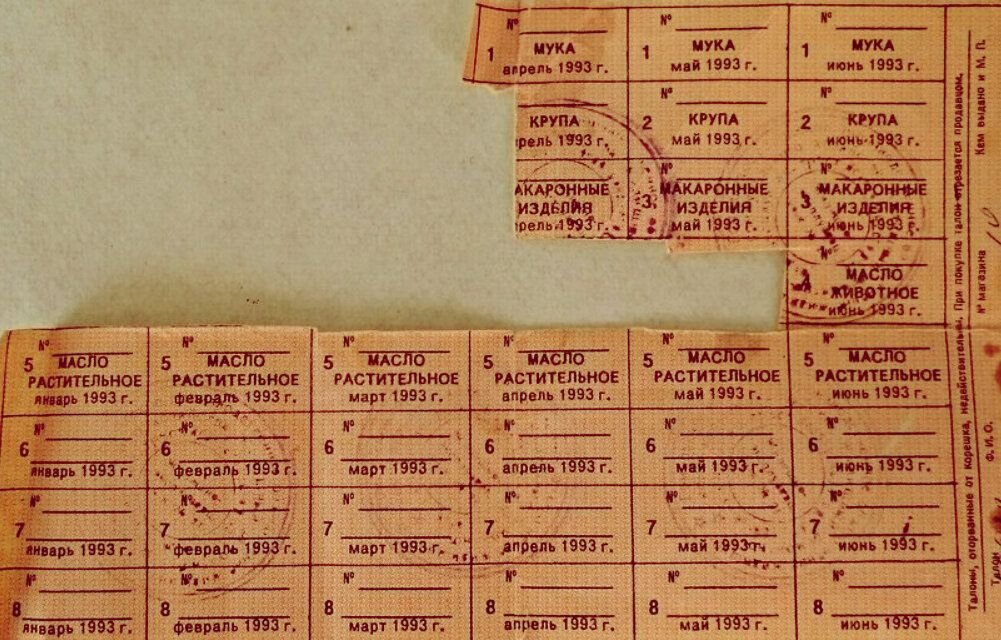 № № №
1 МУКА 1 МУКА 1 МУКА
апрель 1993 г. май 1993 г. июнь 1993 г.
№ №
КРУПА 2 КРУПА 2 КРУПА
рель 1993 г. май 1993 г. июнь 1993 г.
№ №
АКАРОННЫЕ 3 МАКАРОННЫЕ 3 МАКАРОННЫЕ
ИЗДЕЛИЯ ИЗДЕЛИЯ ИЗДЕЛИЯ
рель 1993 г. май 1993 г. июнь 1993 г.
№
4 МАСЛО
ЖИВОТНОЕ
июнь 1993 г.
№ № № № № №
5 МАСЛО 5 МАСЛО 5 МАСЛО 5 МАСЛО 5 МАСЛО 5 МАСЛО
РАСТИТЕЛЬНОЕ РАСТИТЕЛЬНОЕ РАСТИТЕЛЬНОЕ РАСТИТЕЛЬНОЕ РАСТИТЕЛЬНОЕ РАСТИТЕЛЬНОЕ
январь 1993 г. февраль 1993 г. март 1993 г. апрель 1993 г. май 1993 г. июнь 1993 г.
№ № № № № №
6 6 6 6 6 6
январь 1993 г. февраль 1993 г. март 1993 г. апрель 1993 г. май 1993 г. июнь 1993 г.
№ № № № № №
7 7 7 7 7 7
январь 1993 г. февраль 1993 г. март 1993 г. апрель 1993 г. май 1993 г. июнь 1993 г.
№ № № № № №
8 8 8 8 8 8
январь 1993 г. февраль 1993 г. март 1993 г. апрель 1993 г. май 1993 г. июнь 1993 г.
Талоны, оторванные от корешка, недействительны. При покупке талон отрезается продавцом.
Талон Ф. И. О. № магазина Кем выдано и М. П.